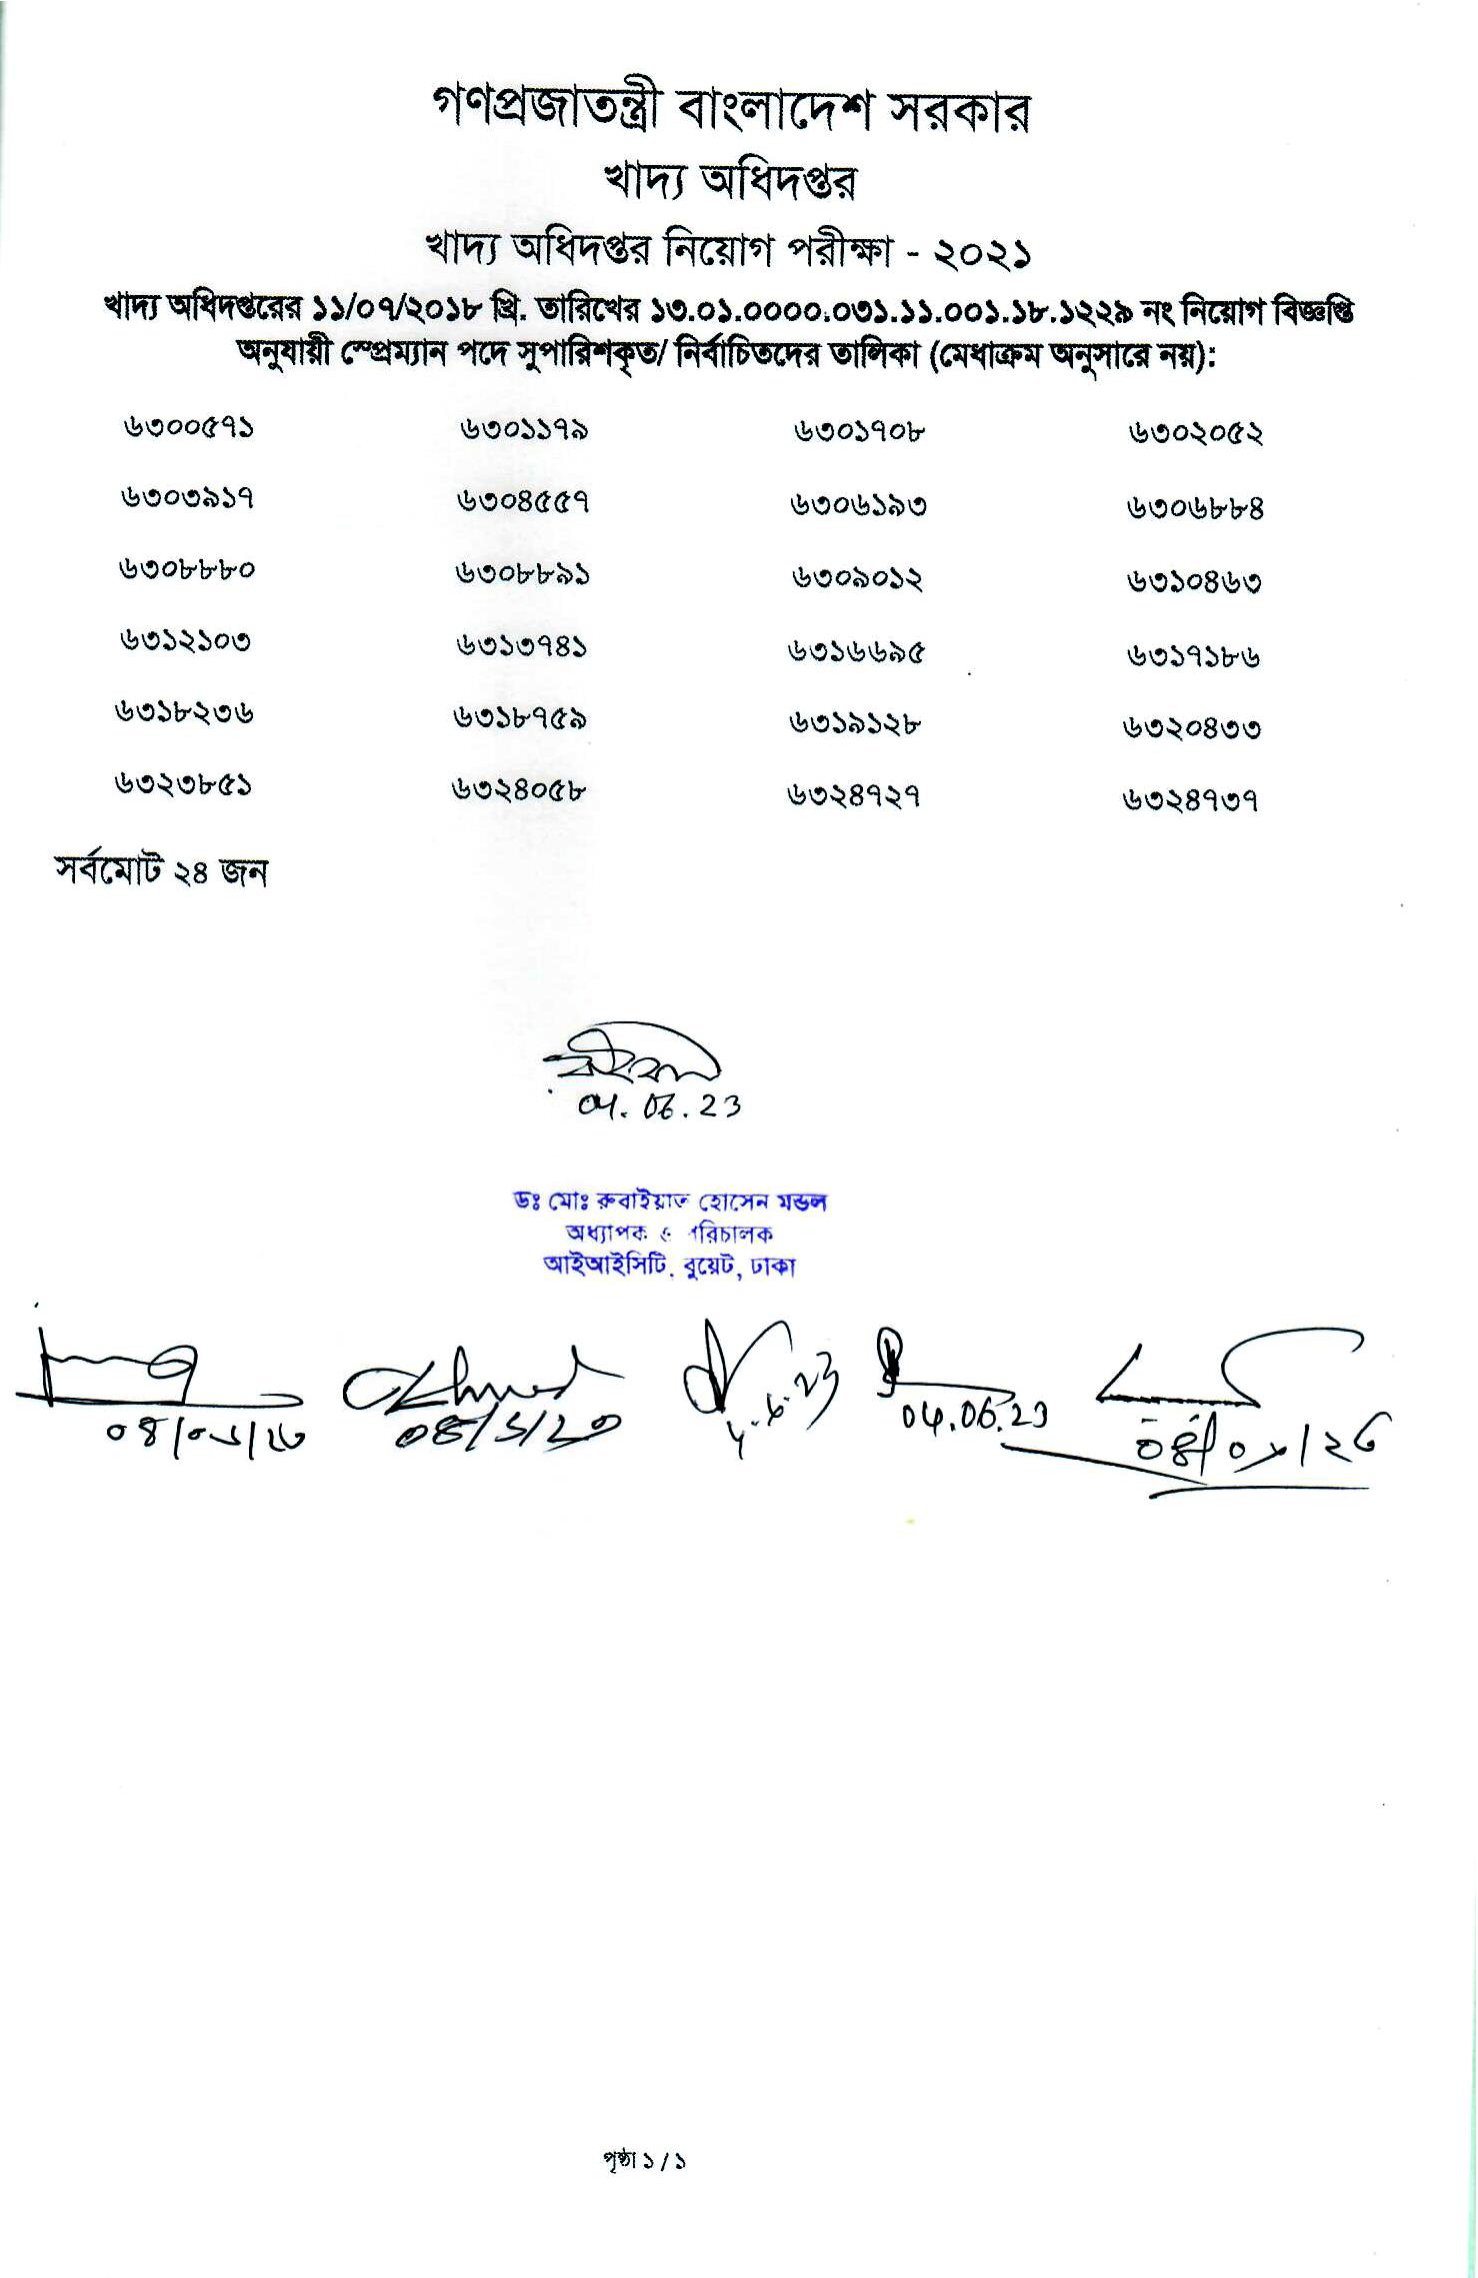 গণপ্রজাতন্ত্রী বাংলাদেশ সরকার
খাদ্য অধিদপ্তর
খাদ্য অধিদপ্তর নিয়োগ পরীক্ষা - ২০২১
খাদ্য অধিদপ্তরের ১১/০৭/২০১৮ খ্রি. তারিখের ১৩.০১.০০০০.০৩১.১১.০০১.১৮.১২২৯ নং নিয়োগ বিজ্ঞপ্তি
অনুযায়ী স্প্রেম্যান পদে সুপারিশকৃত/ নির্বাচিতদের তালিকা (মেধাক্রম অনুসারে নয়):
৬৩০০৫৭১ ৬৩০১১৭৯ ৬৩০১৭০৮ ৬৩০২০৫২
৬৩০৩৯১৭ ৬৩০৪৫৫৭ ৬৩০৬১৯৩ ৬৩০৬৮৮৪
৬৩০৮৮৮০ ৬৩০৮৮৯১ ৬৩০৯০১২ ৬৩১০৪৬৩
৬৩১২১০৩ ৬৩১৩৭৪১ ৬৩১৬৬৯৫ ৬৩১৭১৮৬
৬৩১৮২৩৬ ৬৩১৮৭৫৯ ৬৩১৯১২৮ ৬৩২০৪৩৩
৬৩২৩৮৫১ ৬৩২৪০৫৮ ৬৩২৪৭২৭ ৬৩২৪৭৩৭
সর্বমোট ২৪ জন
04.06.23
ডঃ মোঃ রুবাইয়াত হোসেন মন্ডল
অধ্যাপক ও পরিচালক
আইআইসিটি, বুয়েট, ঢাকা
4.6.23 04.06.23
পৃষ্ঠা ১ / ১